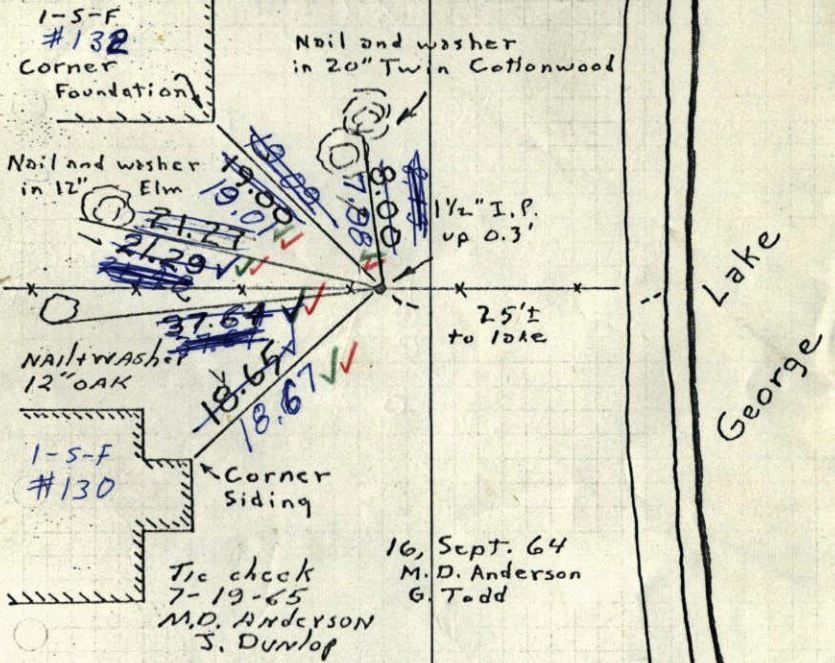 1-S-F
#132
Corner
Foundation
Nail and washer
in 20" Twin Cottonwood
Nail and washer
in 12" Elm
19.00
19.01
8.00
7.98
1½" I.P.
up 0.3'
21.27
21.29
37.64
25'±
to lake
Lake
George
NAIL+WASHER
12" OAK
18.65
18.67
1-S-F
#130
Corner
Siding
Tie check
7-19-65
M.D. ANDERSON
J. Dunlop
16, Sept. 64
M.D. Anderson
G. Todd